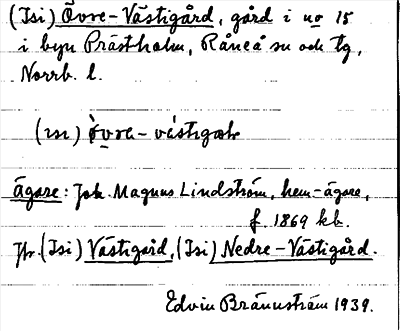 (Isi) Övre-Västigård, gård i no 15
i byn Prästholm, Råneå sn och tg,
Norrb. l.
(ɪsɪ) òvrə-vástigɑh
ägare: Joh. Magnus Lindström, hem.-ägare,
f. 1869 kb.
Jfr. (Isi) Västigård, (Isi) Nedre-Västigård.
Edvin Brännström 1939.